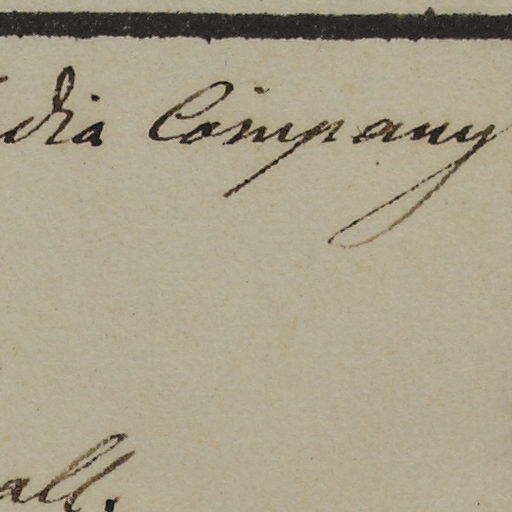 dia Company
all.